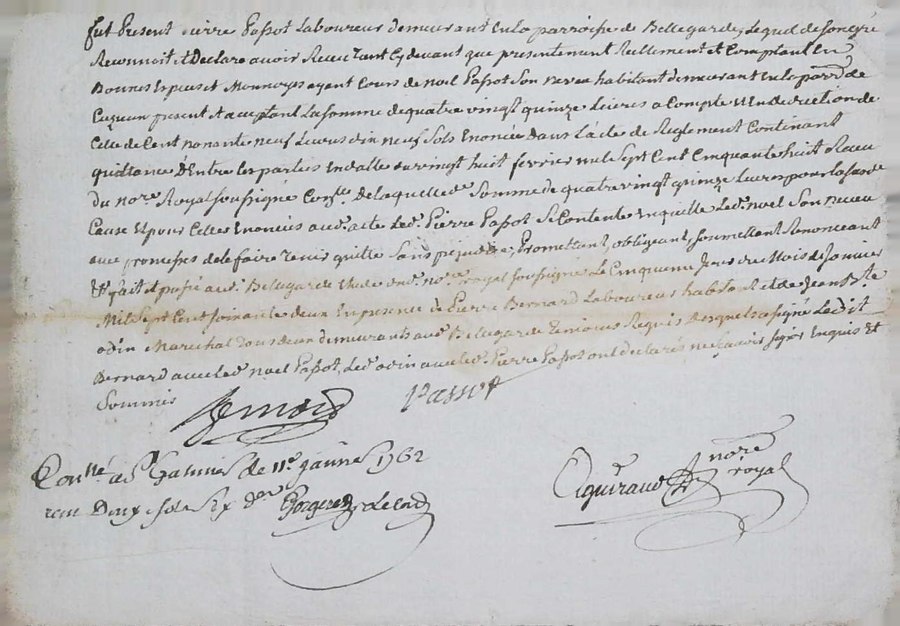 fut Present Pierre Passot Laboureur demeurant en la parroisse de Bellegarde, Lequel de son gré
Reconnoit et Declare avoir Receu tant cy devant que presentement Reellement et Comptant En
Bonnes Especes et Monnoyes ayant Cours de noel Passot Son neveu habitant demeurant en la parr. de
present et acceptant La somme de quatre vingt quinze Livres a Compte Et en deduction de
Celle de Cent nonante neuf Livres dix neuf Sols Enoncée dans L'acte de Reglement Contenant
quittance D'Entre Les parties En datte du vingt huit fevrier mil Sept Cent Cinquante huit Receu
du nore. Royal soussigné de laquelle de. Somme de quatre vingt quinze Livres pour la susde.
Cause Et pour Celles Enoncées aud. acte led. Pierre Passot Se Contente En quitte Led. noel Son neveu
avec promesses de le faire Tenir quitte Sans prejudice, Promettant, obligeant, Soumettant Renonceant
Et fait et passé aud. Bellegarde Etude dud. nore. royal soussigné Le Cinquieme Jour du Mois de Janvier
Mil Sept Cent soixante deux En presence de Pierre Bernard Laboureur habitant et de Jean Bte.
odin Marechal Tous deux demeurants aud. Bellegarde Temoins Requis Desquels a signé Ledit
Bernard avec led. noel Passot, Led. odin avec led. Pierre Passot ont declarés ne sçavoir signer Enquis Et
Sommés
Bernard Passot
Conllé. a St Galmier le 11e. janvier 1762
reçu Douze sols Six drs.
Aguiraud nore royal